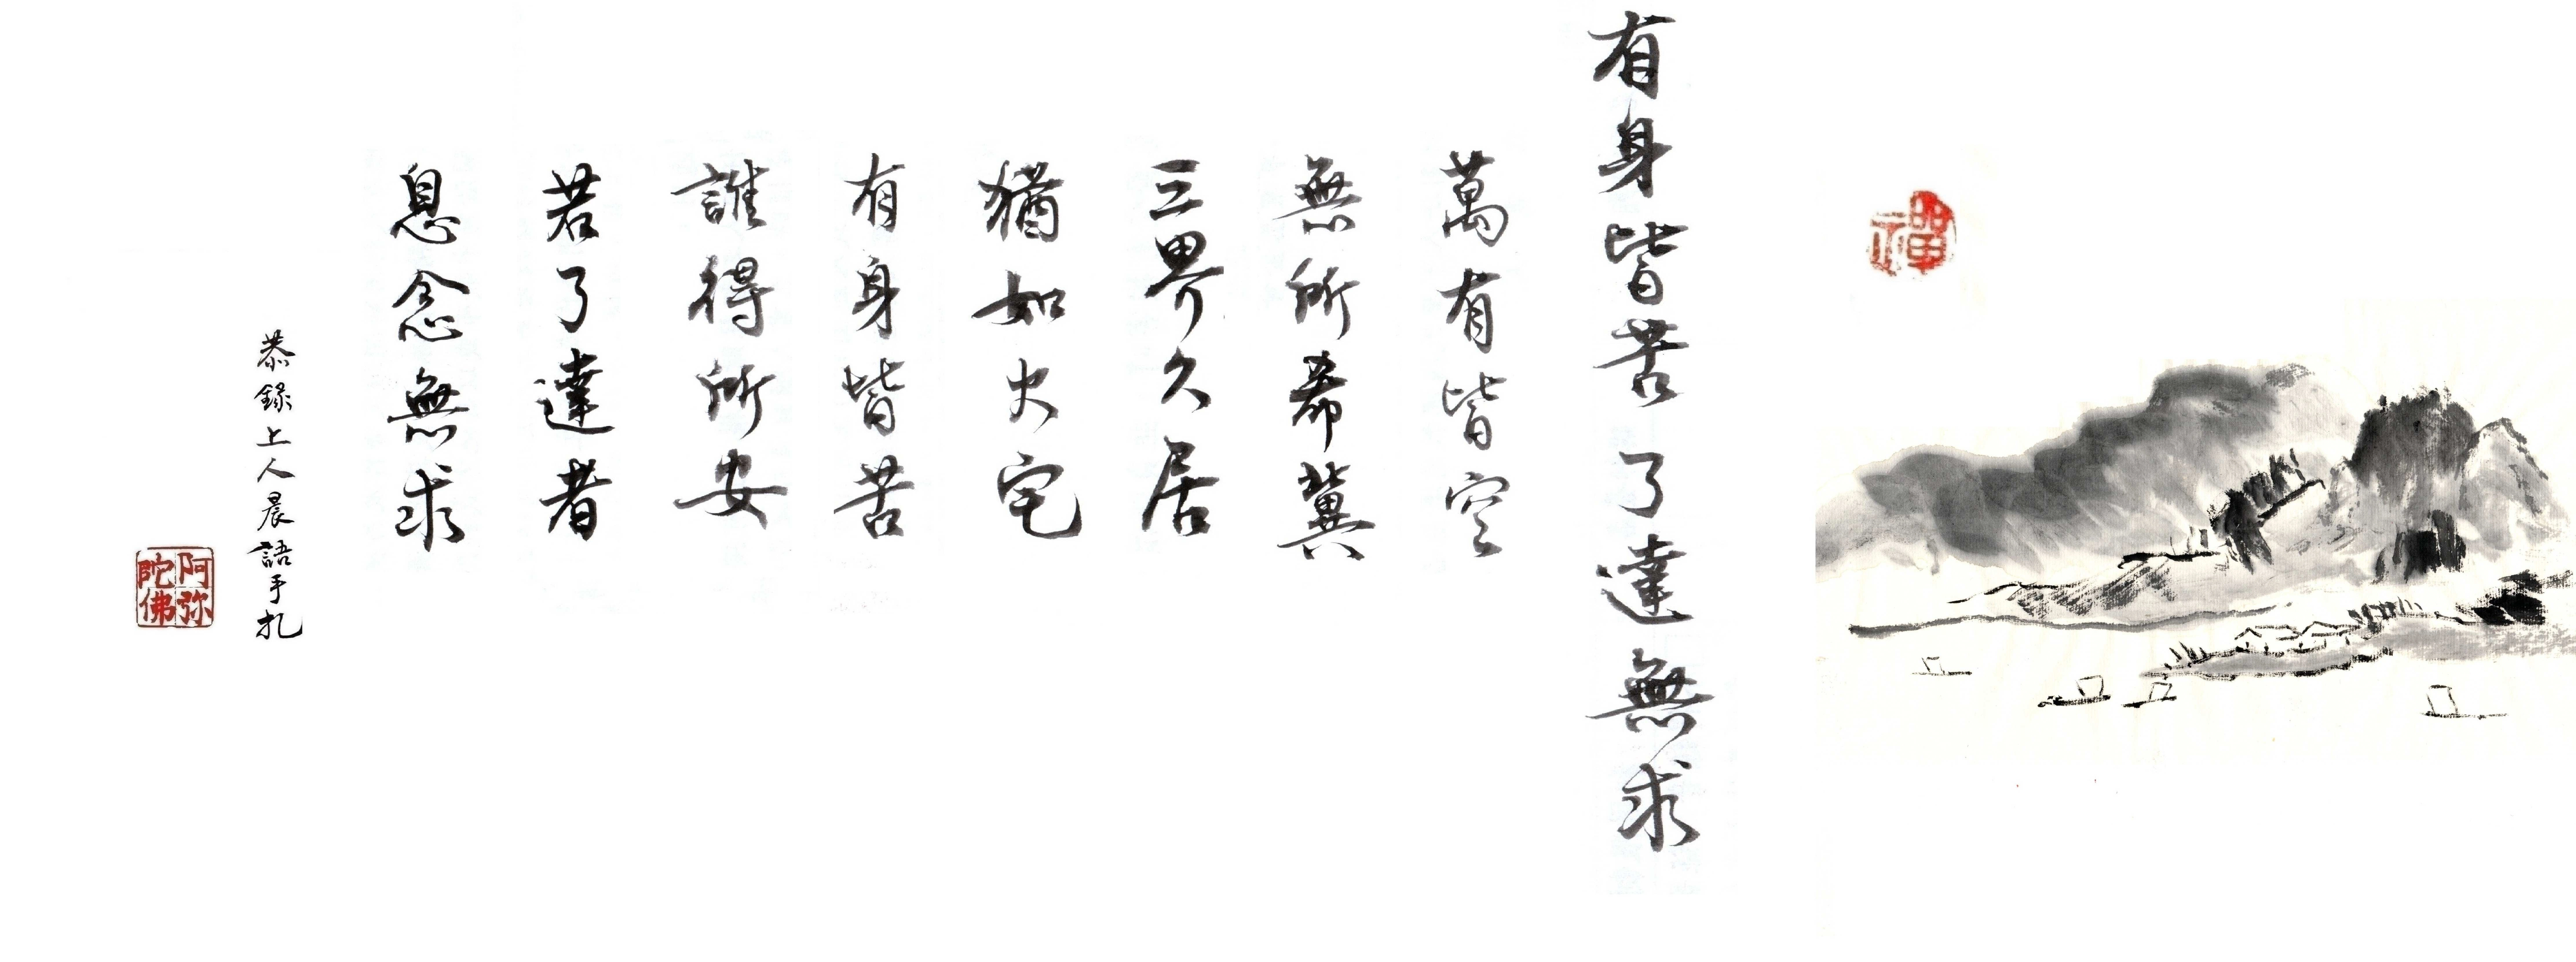 禪
有身皆苦了達無求
萬有皆空
無所希冀
三界久居
猶如火宅
有身皆苦
誰得所安
若了達者
息念無求
恭錄上人晨語手札
阿弥
陀佛